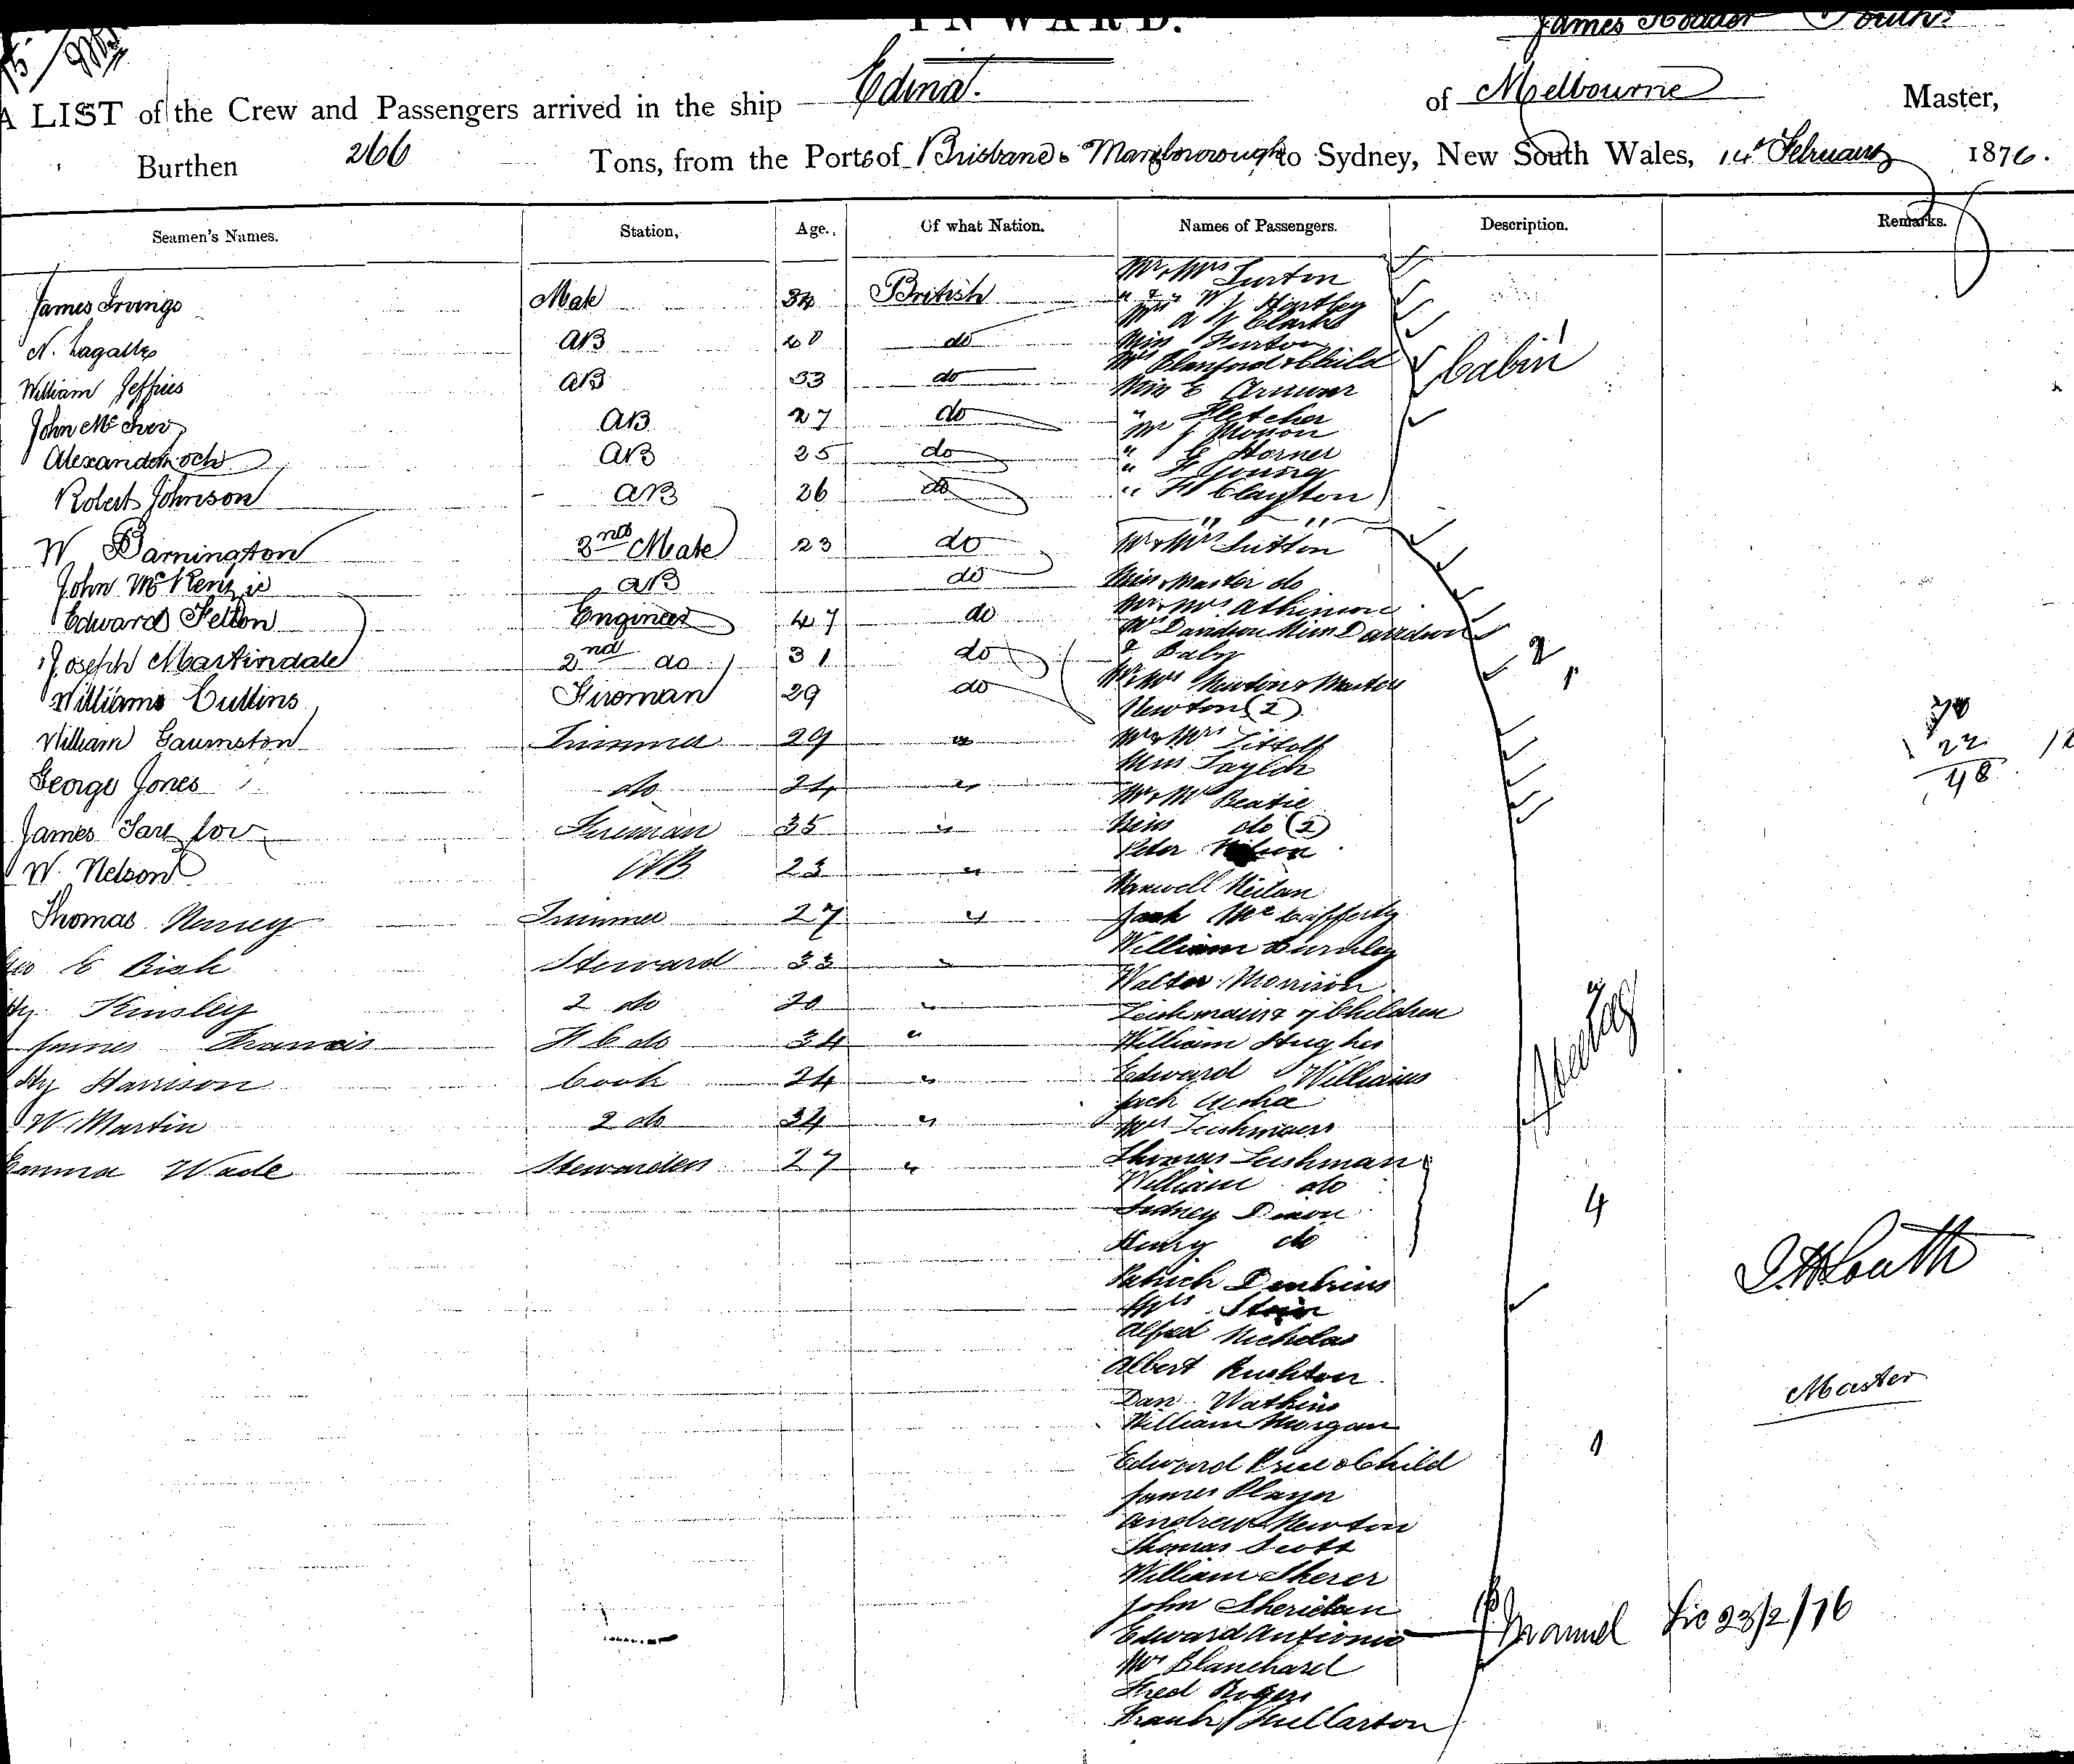 INWARD.
James South
A LIST of the Crew and Passengers arrived in the ship Edina. of Melbourne Master,
Burthen 266 Tons, from the Ports of Brisbane & Maryborough to Sydney, New South Wales, 14th February 1876.
Seamen's Names. Station, Age. Of what Nation. Names of Passengers. Description. Remarks.
James Irvings Mate 34 British
N. Lagalles AB do
William Jeffries AB 53 do
John McIver AB 27 do
Alexander Loch AB 25 do
Robert Johnson AB 26 do
W Barnington 2nd Mate 23 do
John McKenzie AB do
Edward Felton Engineer 47 do
Joseph Martindale 2nd do 31 do
William Cullins Fireman 29 do
William Gaunston Trimmer 29 "
George Jones do 24 "
James Fireman 35 "
W. Nelson AB 23 "
Thomas Trimmer 27 "
Geo E Steward 33 "
Hy. Kinsley 2 do 20 "
James Francis F C do 34 "
Hy Harrison Cook 24 "
W Martin 2 do 34 "
Emma Wade Stewardess 27 "
Mr & Mrs
" & " W J Hartley
A J Clarke
Miss
Mrs Blanford & Child
Miss E
" Fletcher
Mr J
" E Horner
" F Young
" H Clayton
Cabin
Mr & Mrs Sutton
Miss & Master do
Mr & Mrs Atkinson
Mrs Davidson Miss Davidson
& Baby
Mr & Mrs Newton & Masters
Newton (2)
2
1
Mr & Mrs
Miss Taylor
Mr & Mrs Beatie
Miss do (2)
Peter
Maxwell
Jack McCafferty
William Burnley
Walter Morrison
& 7 Children
William Hughes
Edward Williams
Jack
Mrs
Thomas Leishman
William do
Sidney Dixon
Henry do
Steerage
4
Patrick
Mrs
Alfred Nicholas
Albert Rushton
Dan Watkins
William Morgan
Edward Price & Child
1
James Player
Andrew Newton
Thomas Scott
William Sherer
John Sheridan
Edward Antonio
Manuel Lic 23/2/76
Mr Blanchard
Fred Rogers
Frank Fullarton
70
22
48
J. H. South
Master